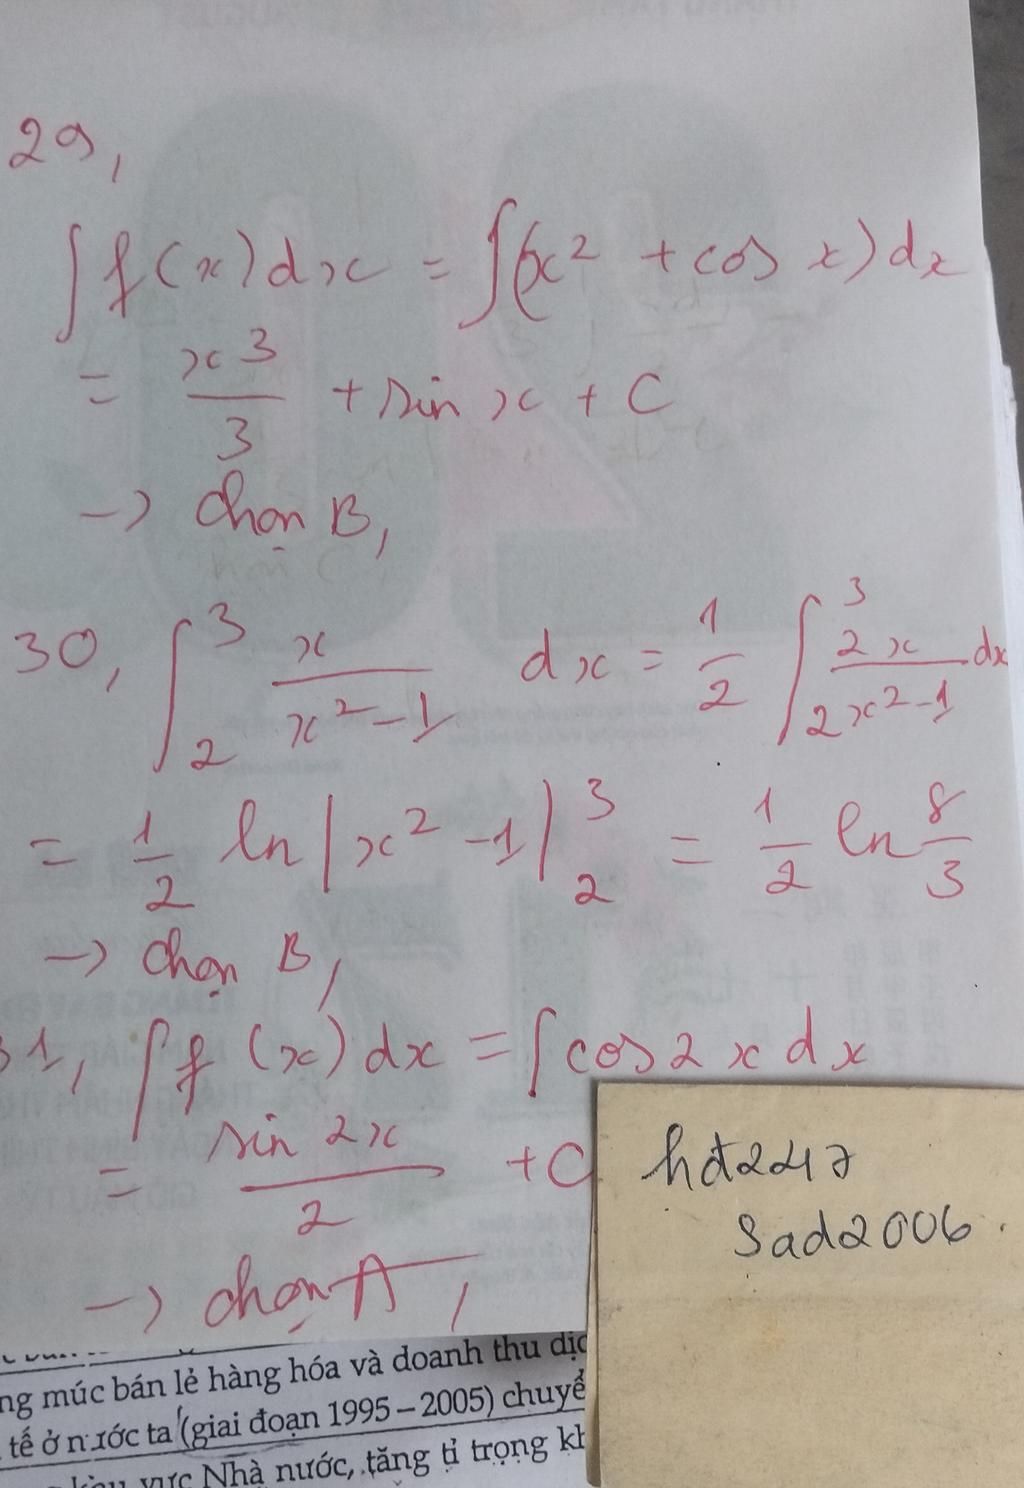 29,
∫ f(x)dx = ∫(x² + cos x)dx
= x³/3 + sin x + C
→ chọn B,
30, ∫₂³ x/(x²-1) dx = 1/2 ∫₂³ 2x/(x²-1) dx
= 1/2 ln|x²-1| |₂³ = 1/2 ln 8/3
→ chọn B,
31, ∫ f(x)dx = ∫cos2x dx
= sin 2x/2 + C
→ chọn A,
hđ247
Sad2006.
ng múc bán lẻ hàng hóa và doanh thu dịc
tế ở nước ta (giai đoạn 1995 – 2005) chuyể
vực Nhà nước, tăng tỉ trọng kh